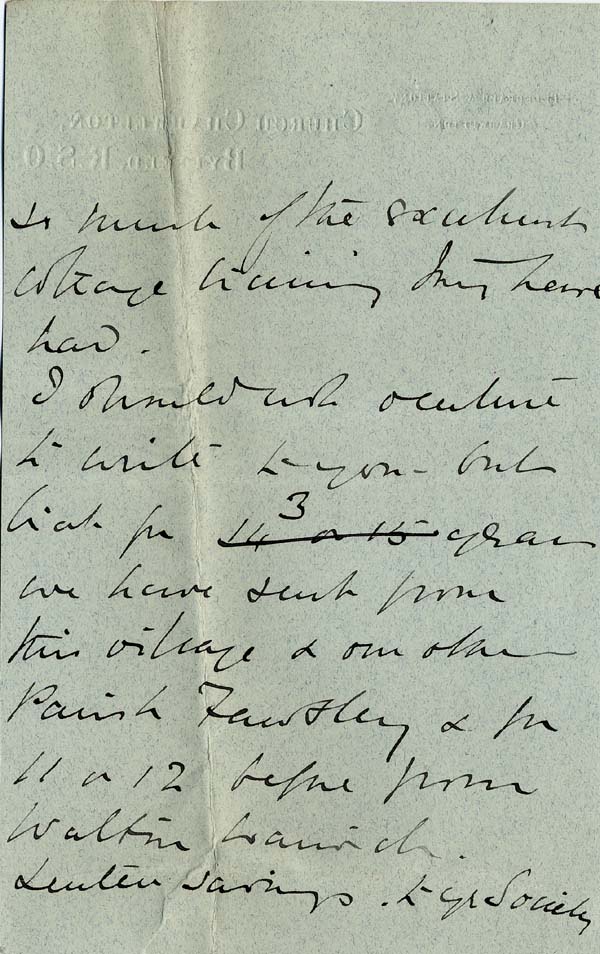 Church Charwelton,
Byfield, R.S.O.
so much of the excellent
cottage training They have
had.
I should not venture
to write to you - but
that for 14 or 15 3 years
we have sent from
this village & our other
Parish Fawsley & for
11 or 12 before from
Walton Warwick.
Lenten Savings. to yr Society